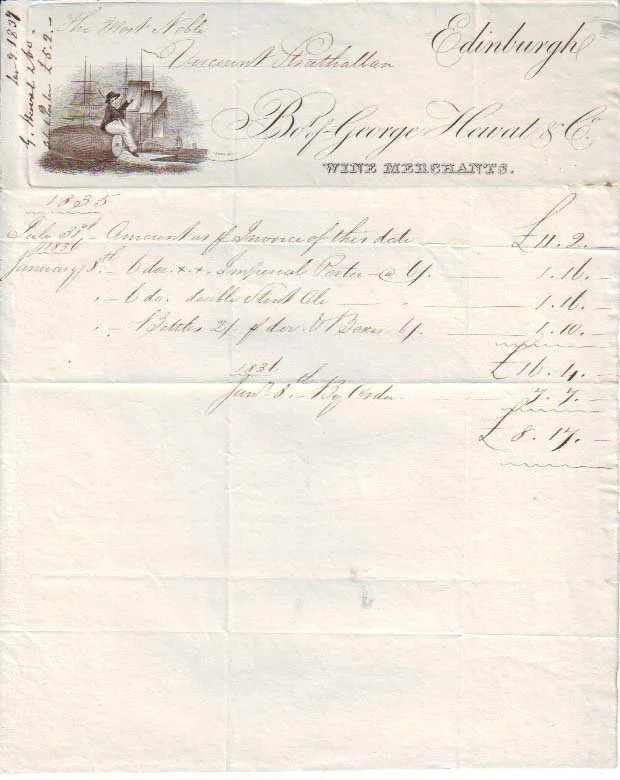 Edinburgh
The Most Noble
Viscount Strathallan
Bot. of George Hewat & Co.
WINE MERCHANTS.
1835
July 31st - Amount as pr Invoice of this date — £11. 2. -
1836
January 8th - 6 doz. x. x. Imperial Porter - @ 6/. — 1. 16. -
" - 6 do. double Stout Ale — " — 1. 16. -
" - Bottles 2/. pr doz. & Boxes 6/. — 1. 10. -
£16. 4. -
1836
Jany. 8th - By — 7. 7. -
£8. 17. -
G. Hewat & Co.
£ 5. 2. -